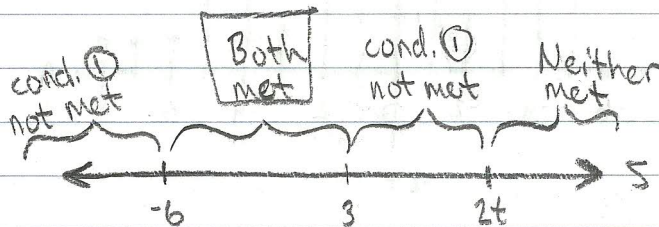 cond. ①
not met
Both
met
cond. ①
not met
Neither
met
-6 3 2t S